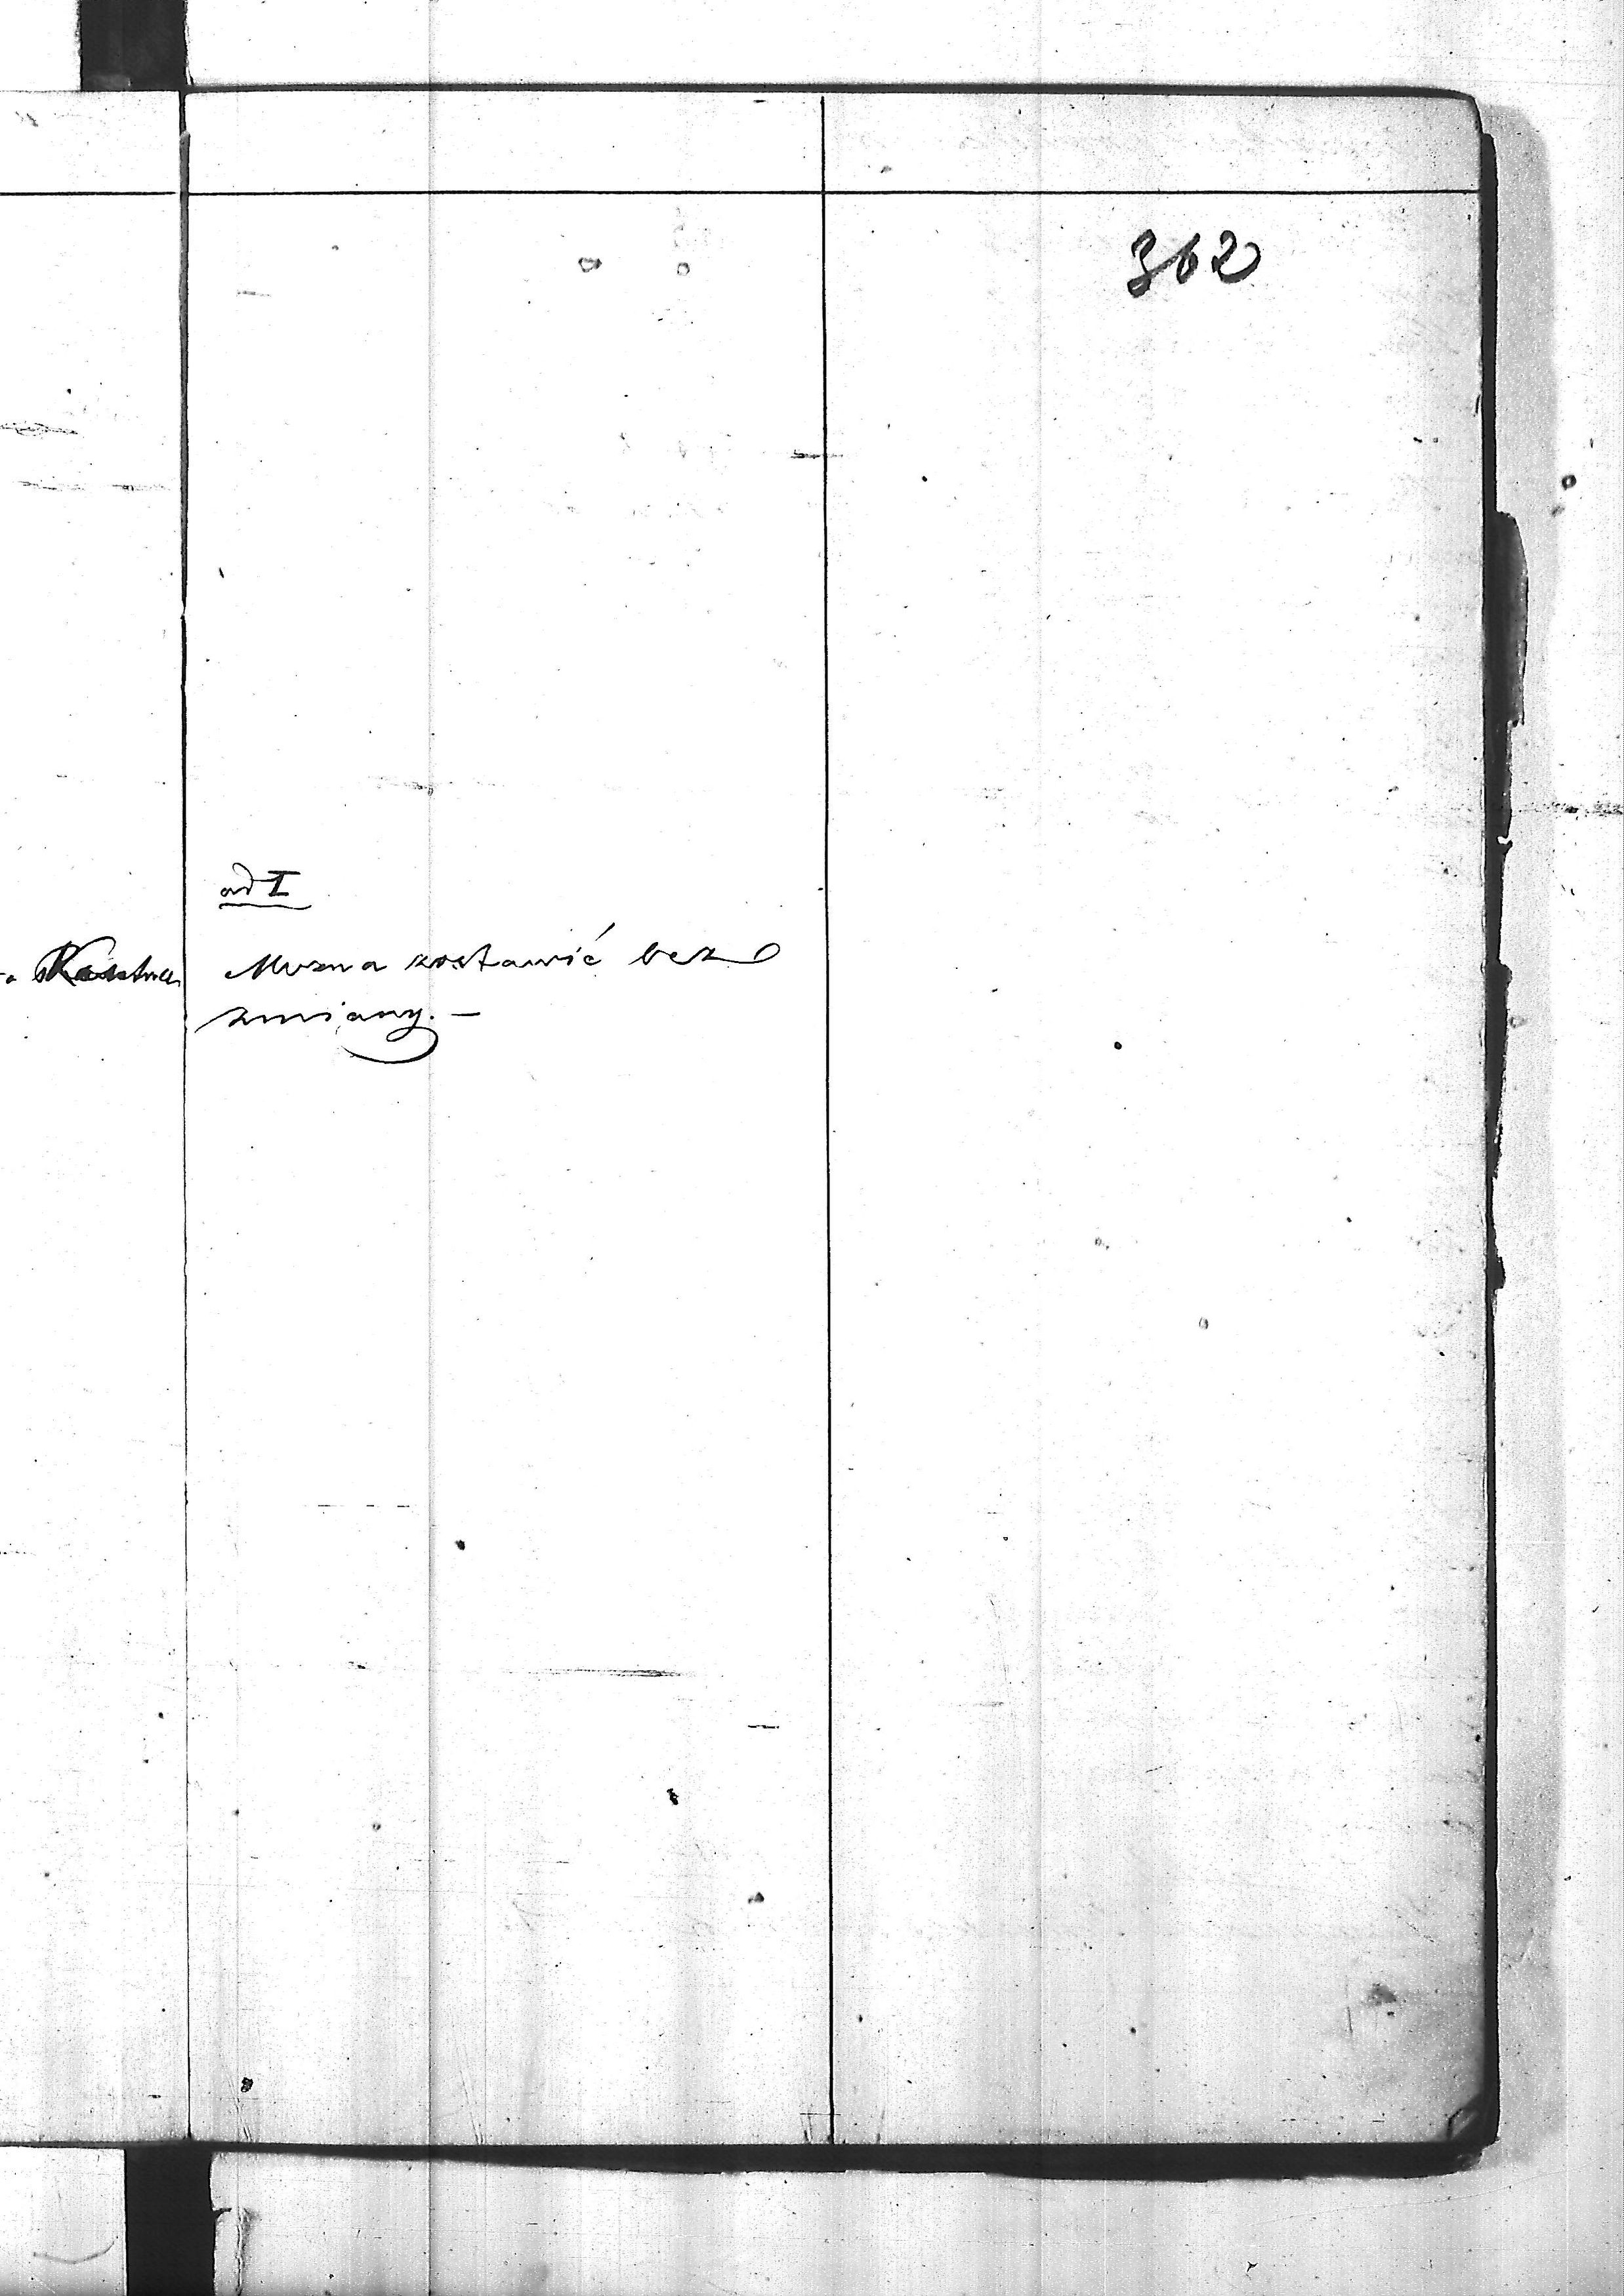 362
ad I
Można zostawić bez
zmiany. —